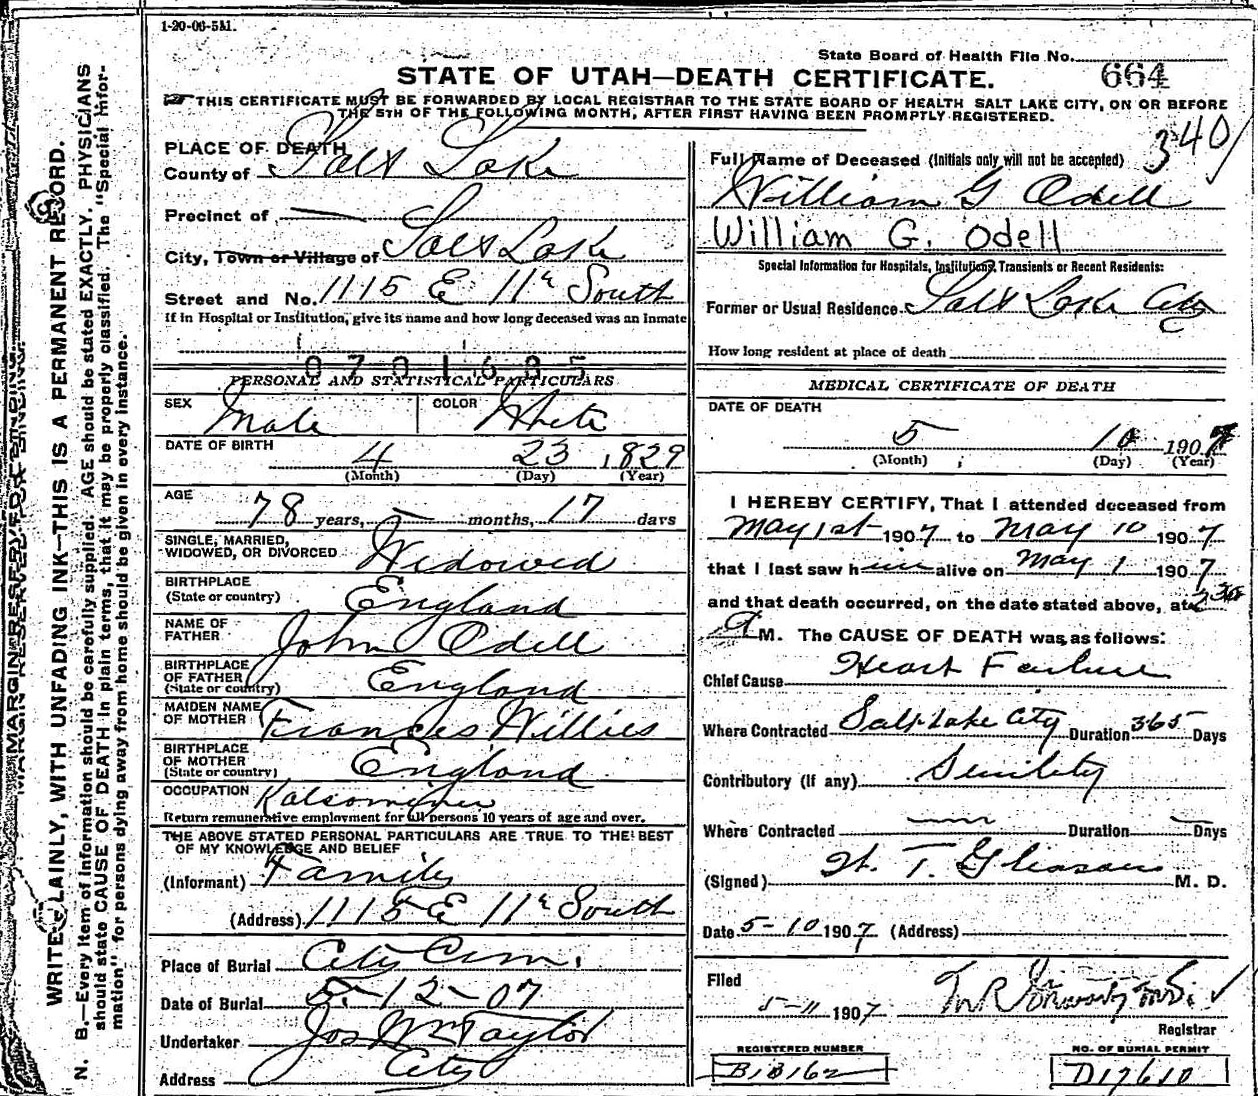 1-20-06-5M.
State Board of Health File No. 664
STATE OF UTAH—DEATH CERTIFICATE.
THIS CERTIFICATE MUST BE FORWARDED BY LOCAL REGISTRAR TO THE STATE BOARD OF HEALTH SALT LAKE CITY, ON OR BEFORE
THE 5TH OF THE FOLLOWING MONTH, AFTER FIRST HAVING BEEN PROMPTLY REGISTERED.
340
PLACE OF DEATH
County of Salt Lake
Precinct of —
City, Town or Village of Salt Lake
Street and No. 1115 E 11th South
If in Hospital or Institution, give its name and how long deceased was an inmate
0701685
PERSONAL AND STATISTICAL PARTICULARS
SEX Male COLOR White
DATE OF BIRTH 4 23 1829
(Month) (Day) (Year)
AGE
78 years, — months, 17 days
SINGLE, MARRIED,
WIDOWED, OR DIVORCED Widowed
BIRTHPLACE
(State or country) England
NAME OF
FATHER John Odell
BIRTHPLACE
OF FATHER
(State or country) England
MAIDEN NAME
OF MOTHER Frances Willies
BIRTHPLACE
OF MOTHER
(State or country) England
OCCUPATION Kalsominer
Return remunerative employment for all persons 10 years of age and over.
THE ABOVE STATED PERSONAL PARTICULARS ARE TRUE TO THE BEST
OF MY KNOWLEDGE AND BELIEF
(Informant) Family
(Address) 1115 E 11th South
Place of Burial City Cem.
Date of Burial 5-12-07
Undertaker Jos Wm Taylor
Address City
Full Name of Deceased (Initials only will not be accepted)
William G Odell
William G. Odell
Special Information for Hospitals, Institutions, Transients or Recent Residents:
Former or Usual Residence Salt Lake City
How long resident at place of death
MEDICAL CERTIFICATE OF DEATH
DATE OF DEATH
5 10 1907
(Month) (Day) (Year)
I HEREBY CERTIFY, That I attended deceased from
May 1st 1907 to May 10 1907
that I last saw him alive on May 1 1907
and that death occurred, on the date stated above, at 2 30
A M. The CAUSE OF DEATH was as follows:
Chief Cause Heart Failure
Where Contracted Salt Lake City Duration 365 Days
Contributory (If any) Senility
Where Contracted — Duration — Days
(Signed) H. T. Gleason M. D.
Date 5-10 1907 (Address)
Filed
5-11 1907
Registrar
REGISTERED NUMBER
B18162
NO. OF BURIAL PERMIT
D17610
MARGIN RESERVED FOR BINDING.
WRITE PLAINLY, WITH UNFADING INK—THIS IS A PERMANENT RECORD.
N. B.—Every item of information should be carefully supplied. AGE should be stated EXACTLY. PHYSICIANS
should state CAUSE OF DEATH in plain terms, that it may be properly classified. The "Special Infor-
mation" for persons dying away from home should be given in every instance.